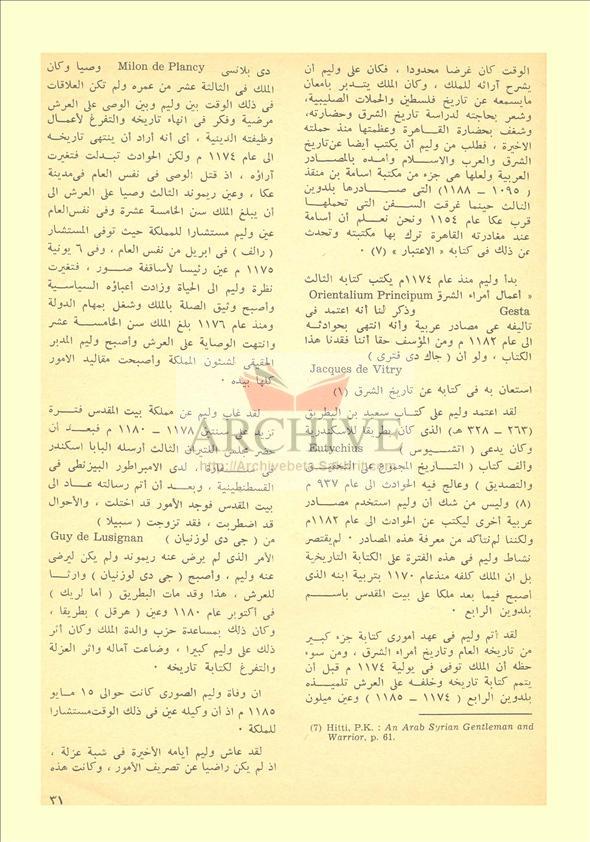 الوقت كان غرضا محدودا ، فكان على وليم أن
يشرح آرائه للملك ، وكان الملك يتدبر بامعان
مايسمعه عن تاريخ فلسطين والحملات الصليبية،
وشعر بحاجته لدراسة تاريخ الشرق وحضارته،
وشغف بحضارة القاهرة وعظمتها منذ حملته
الاخيرة ، فطلب من وليم أن يكتب أيضا عن تاريخ
الشرق والعرب والاسلام وأمده بالمصادر
العربية ولعلها هى جزء من مكتبة اسامة بن منقذ
( ١٠٩٥ – ١١٨٨ ) التى صادرها بلدوين
الثالث حينما غرقت السفن التى تحملها
قرب عكا عام ١١٥٤ ونحن نعلم أن أسامة
عند مغادرته القاهرة ترك بها مكتبته وتحدث
عن ذلك فى كتابه « الاعتبار » (٧) ٠
بدأ وليم منذ عام ١١٧٤م يكتب كتابه الثالث
« أعمال أمراء الشرق Orientalium Principum
Gesta وذكر لنا أنه اعتمد فى
تاليفه على مصادر عربية وأنه انتهى بحوادثه
الى عام ١١٨٢ م ومن المؤسف حقا أننا فقدنا هذا
الكتاب ، ولو أن ( جاك دى فترى )
Jacques de Vitry
استعان به فى كتابه عن تاريخ الشرق (١)
لقد اعتمد وليم على كتاب سعيد بن البطريق
(٢٦٣ – ٣٢٨ هـ) الذى كان بطريقا للاسكندرية
وكان يدعى ( اتشيوس Eutychius
وألف كتاب ( التاريخ المجموع على التحقيق
والتصديق ) وعالج فيه الحوادث الى عام ٩٣٧ م
(٨) وليس من شك أن وليم استخدم مصادر
عربية أخرى ليكتب عن الحوادث الى عام ١١٨٢م
ولكننا لم نتأكد من معرفة هذه المصادر ٠ لم يقتصر
نشاط وليم فى هذه الفترة على الكتابة التاريخية
بل ان الملك كلفه منذعام ١١٧٠ بتربية ابنه الذى
أصبح فيما بعد ملكا على بيت المقدس باسم
بلدوين الرابع ٠
لقد أتم وليم فى عهد أمورى كتابة جزء كبير
من تاريخه العام وتاريخ أمراء الشرق ، ومن سوء
حظه أن الملك توفى فى يولية ١١٧٤ م قبل أن
يتمم كتابة تاريخه وخلفه على العرش تلميذه
بلدوين الرابع ( ١١٧٤ – ١١٨٥ ) وعين ميلون
(7) Hitti, P.K. : An Arab Syrian Gentleman and
Warrior, p. 61.
دى بلانسى Milon de Plancy وصيا وكان
الملك فى الثالثة عشر من عمره ولم تكن العلاقات
فى ذلك الوقت بين وليم وبين الوصى على العرش
مرضية وفكر فى انهاء تاريخه والتفرغ لأعمال
وظيفته الدينية ، أى أنه أراد أن ينتهى تاريخه
الى عام ١١٧٤ م ولكن الحوادث تبدلت فتغيرت
آراؤه ، اذ قتل الوصى فى نفس العام فى مدينة
عكا ، وعين ريموند الثالث وصيا على العرش الى
أن يبلغ الملك سن الخامسة عشرة وفى نفس العام
عين وليم مستشارا للمملكة حيث توفى المستشار
( رالف ) فى ابريل من نفس العام ، وفى ٦ يونية
١١٧٥ م عين رئيسا لأساقفة صور ، فتغيرت
نظرة وليم الى الحياة وزادت أعباؤه السياسية
وأصبح وثيق الصلة بالملك وشغل بمهام الدولة
ومنذ عام ١١٧٦ بلغ الملك سن الخامسة عشر
وانتهت الوصاية على العرش وأصبح وليم المدبر
الحقيقى لشئون المملكة وأصبحت مقاليد الامور
كلها بيده ٠
لقد غاب وليم عن مملكة بيت المقدس فترة
تزيد على سنتين ١١٧٨ – ١١٨٠ م فبعد ان
حضر مجلس اللتيران الثالث أرسله البابا اسكندر
فى لدى الامبراطور البيزنطى فى
القسطنطينية ، وبعد أن أتم رسالته عاد الى
بيت المقدس فوجد الأمور قد اختلت ، والأحوال
قد اضطربت ، فقد تزوجت ( سبيلا )
من ( جى دى لوزنيان ) Guy de Lusignan
الأمر الذى لم يرض عنه ريموند ولم يكن ليرضى
عنه وليم ، وأصبح (جى دى لوزنيان ) وارثا
للعرش ، هذا وقد مات البطريق ( أما لريك )
فى أكتوبر عام ١١٨٠ وعين ( هرقل ) بطريقا ،
وكان ذلك بمساعدة حزب والدة الملك وكان أثر
ذلك على وليم كبيرا ، وضاعت آماله واثر العزلة
والتفرغ لكتابة تاريخه ٠
ان وفاة وليم الصورى كانت حوالى ١٥ مايو
١١٨٥ م اذ أن وكيله عين فى ذلك الوقت مستشارا
للمملكة ٠
لقد عاش وليم أيامه الأخيرة فى شبة عزلة ،
اذ لم يكن راضيا عن تصريف الأمور ، وكانت هذه
٣١
ARCHIVE